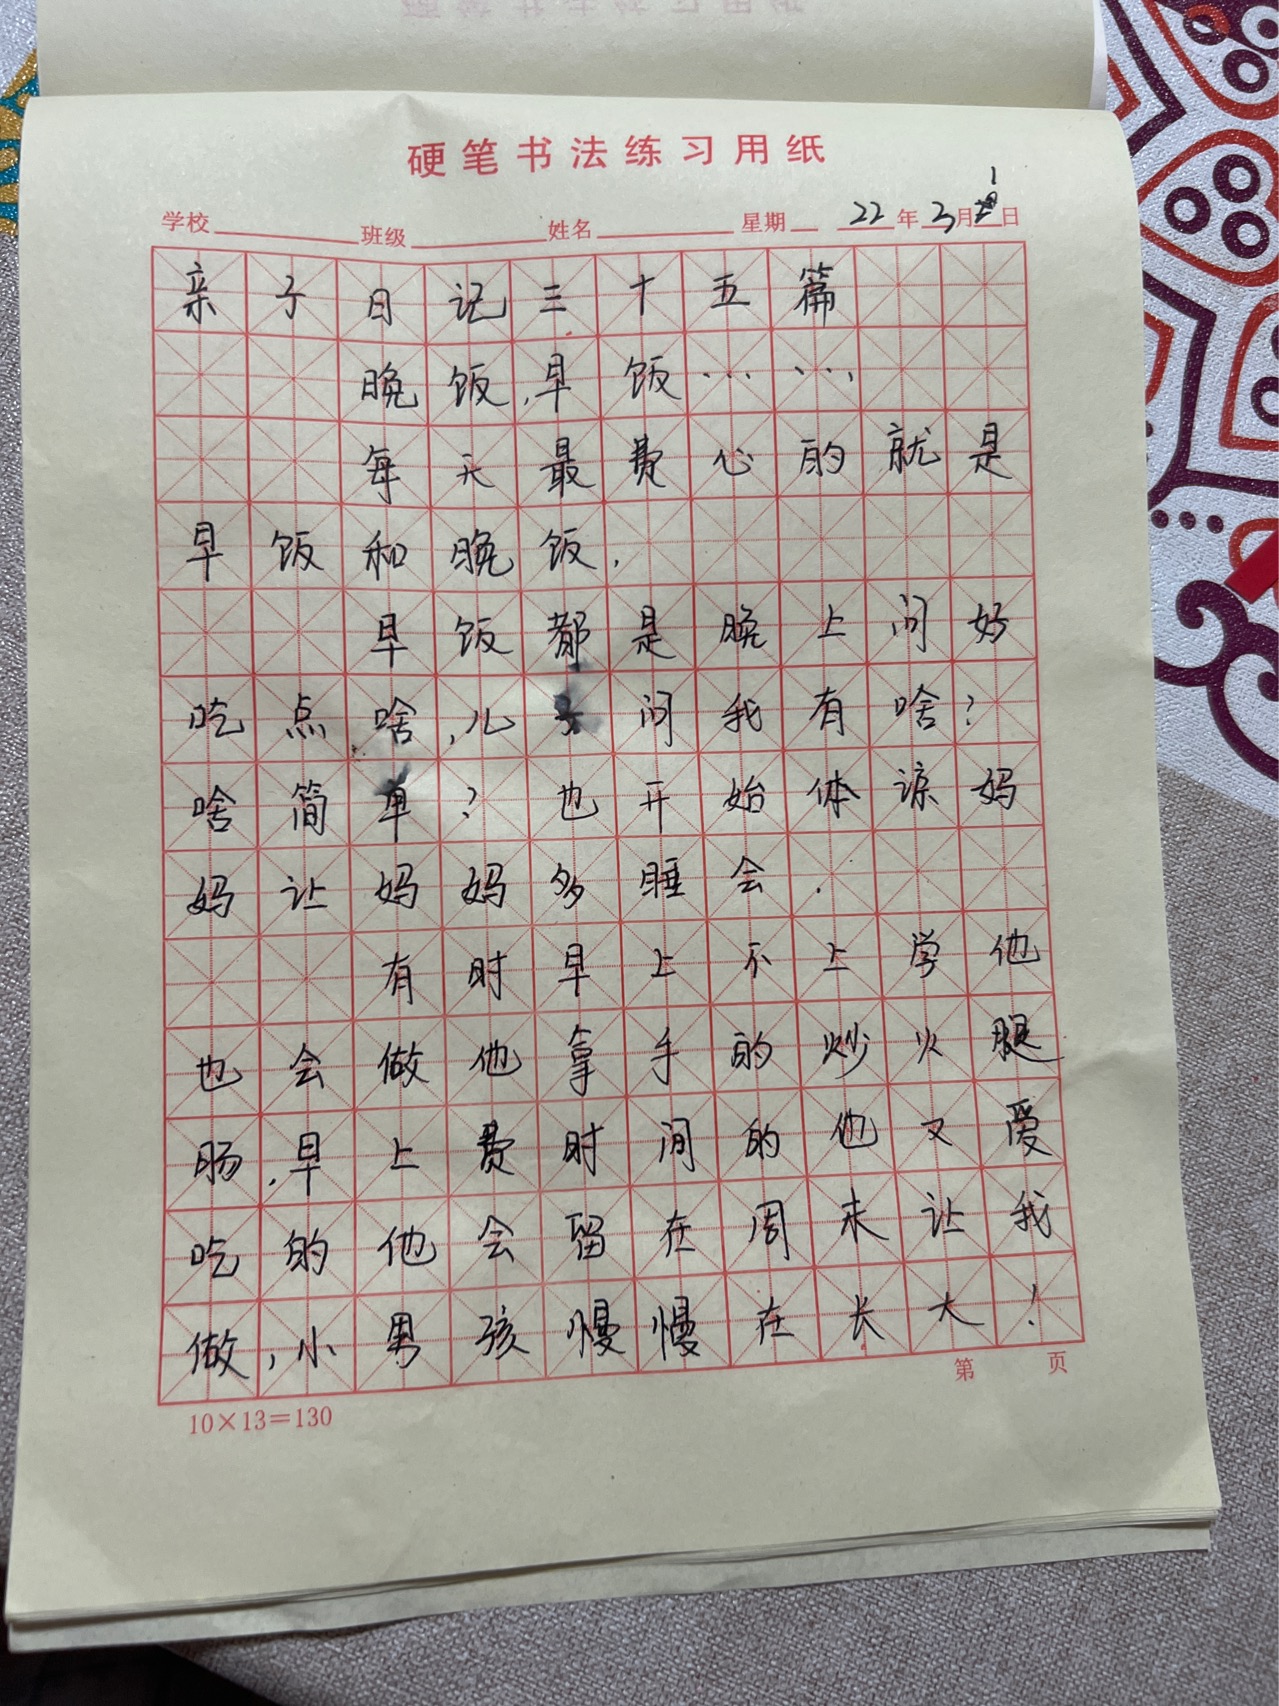 硬笔书法练习用纸
学校 班级 姓名 星期 22年3月1日
亲子日记三十五篇
晚饭,早饭……
每天最费心的就是
早饭和晚饭.
早饭都是晚上问好
吃点啥,儿 问我有啥?
啥简单?也开始体谅妈
妈让妈妈多睡会.
有时早上不上学他
也会做他拿手的炒火腿
肠,早上费时间的他又爱
吃的他会留在周末让我
做,小男孩慢慢在长大!
第 页
10×13=130